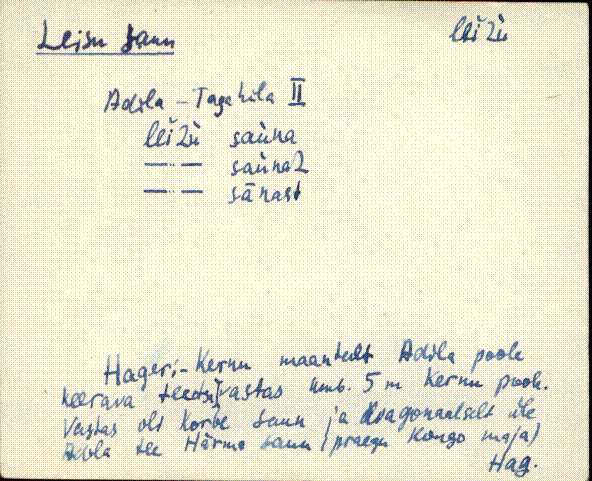 Leisu saun
lèi᷈zù
Adila – Tagaküla II
lèizù saùna
—"— saùnaʟ
—"— sānast
Hageri-Kernu maanteelt Adila poole
keerava teeotsa vastas umb. 5 m Kernu poole.
Vastas oli Korbe saun ja diagonaalselt üle
Adila tee Härma saun (praegu Kongo maja)
Hag.